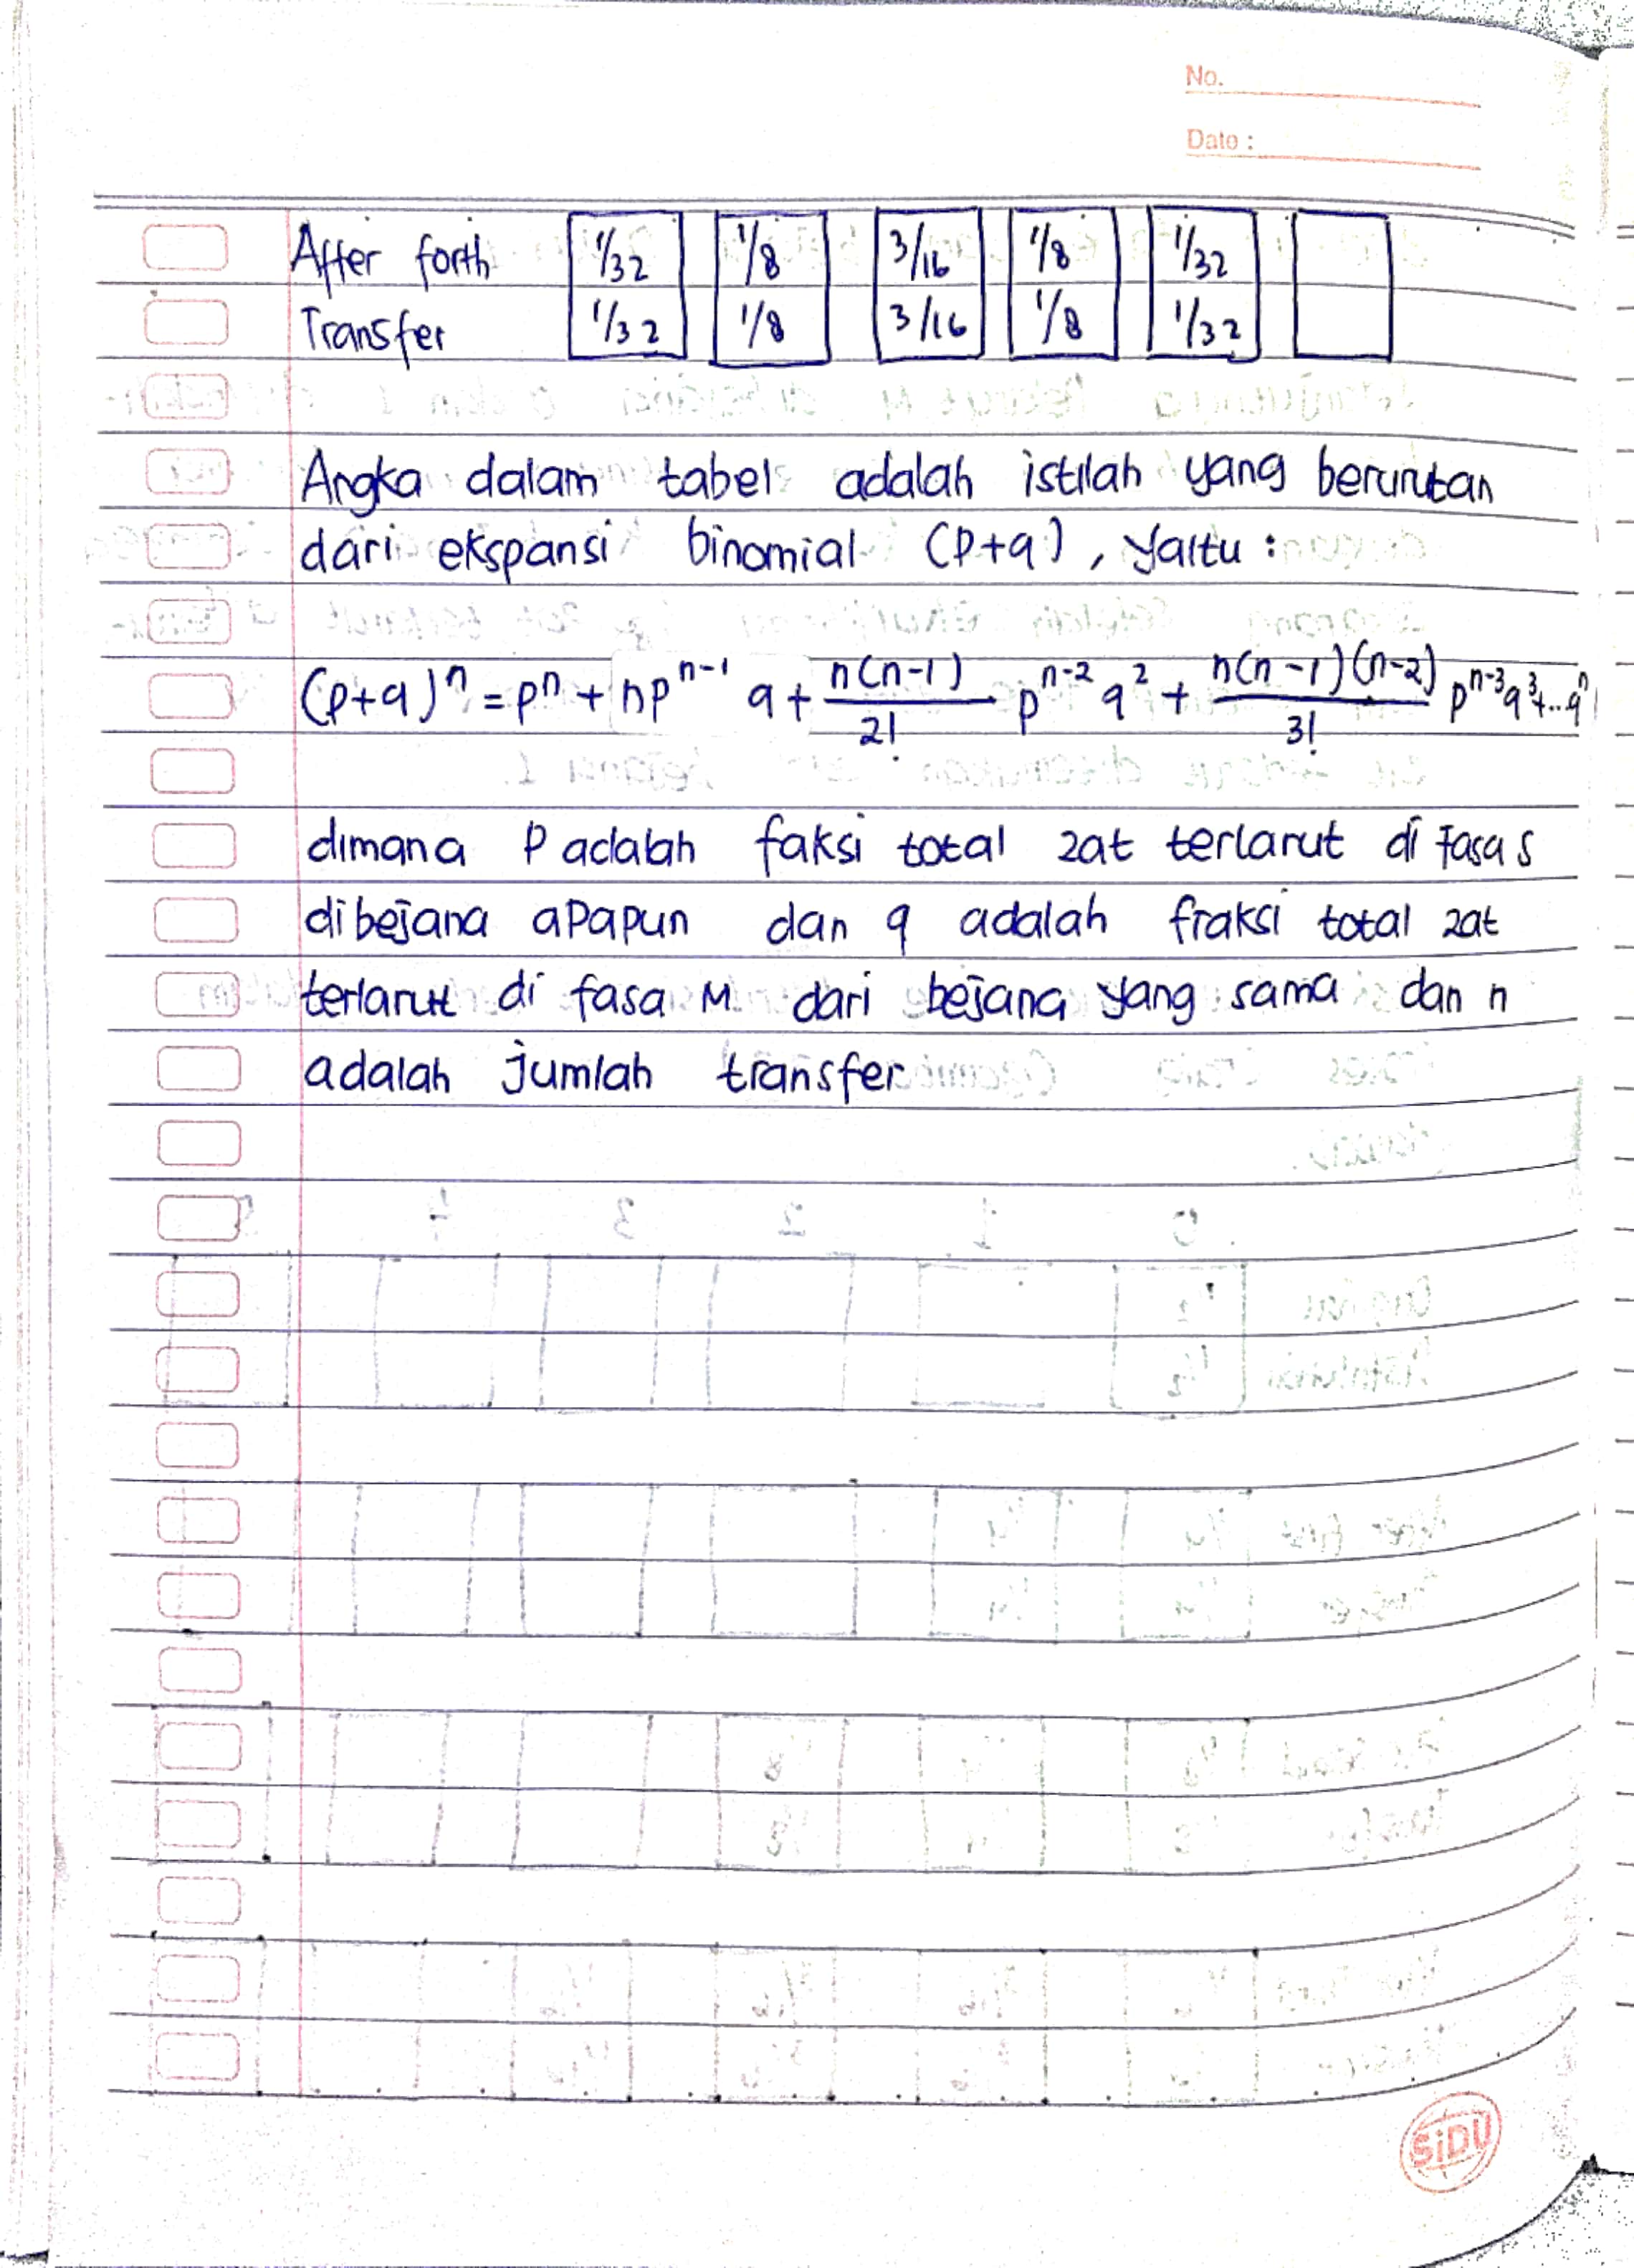 No.
Date :
After forth 1/32 1/8 3/16 1/8 1/32
Transfer 1/32 1/8 3/16 1/8 1/32
Angka dalam tabel adalah istilah yang berurutan
dari ekspansi binomial (p+q), yaitu :
(p+q)ⁿ = pⁿ + npⁿ⁻¹ q + n(n-1)/2! pⁿ⁻² q² + n(n-1)(n-2)/3! pⁿ⁻³q³+..qⁿ
dimana P adalah faksi total zat terlarut di fasa s
dibejana apapun dan q adalah fraksi total zat
terlarut di fasa M dari bejana yang sama dan n
adalah jumlah transfer
SiDU